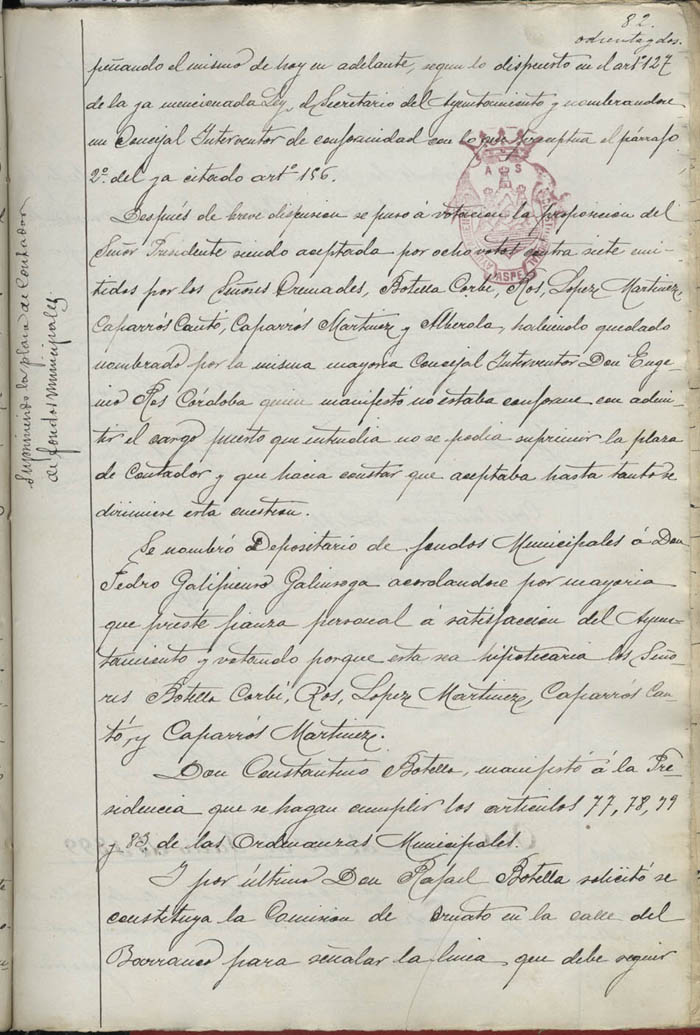 82.
ochenta y dos.
peñando el mismo de hoy en adelante, segun lo dispuesto en el artº 127
de la ya mencionada Ley, el Secretario del Ayuntamiento y nombrandose
un Concejal Interventor de conformidad con lo que preceptua el párrafo
2º del ya citado artº 156.
Suprimiendo la plaza de Contador
de fondos municipales
Después de breve discusion se puso á votacion la proposicion del
Señor Presidente siendo aceptada por ocho votos contra siete emi-
tidos por los Señores Cremades, Botella Corbí, Ros, Lopez Martinez,
Caparrós Cantó, Caparrós Martinez y Alberola, habiendo quedado
nombrado por la misma mayoria Concejal Interventor Don Euge-
nio Ros Córdoba quien manifestó no estaba conforme con admi-
tir el cargo puesto que entendia no se podia suprimir la plaza
de Contador y que hacia constar que aceptaba hasta tanto se
dirimiese esta cuestion.
Se nombró Depositario de fondos Municipales á Don
Pedro Galipienso Galinsoga acordandose por mayoria
que preste fianza personal á satisfaccion del Ayun-
tamiento y votando porque esta sea hipotecaria los Seño-
res Botella Corbí, Rós, Lopez Martinez, Caparrós Can-
tó, y Caparrós Martinez.
Don Constantino Botella, manifestó á la Pre-
sidencia que se hagan cumplir los articulos 77, 78, 79
y 83 de las Ordenanzas Municipales.
Y por último Don Rafael Botella solicitó se
constituya la Comision de Ornato en la calle del
Barranco para señalar la linea que debe seguir
ASPE